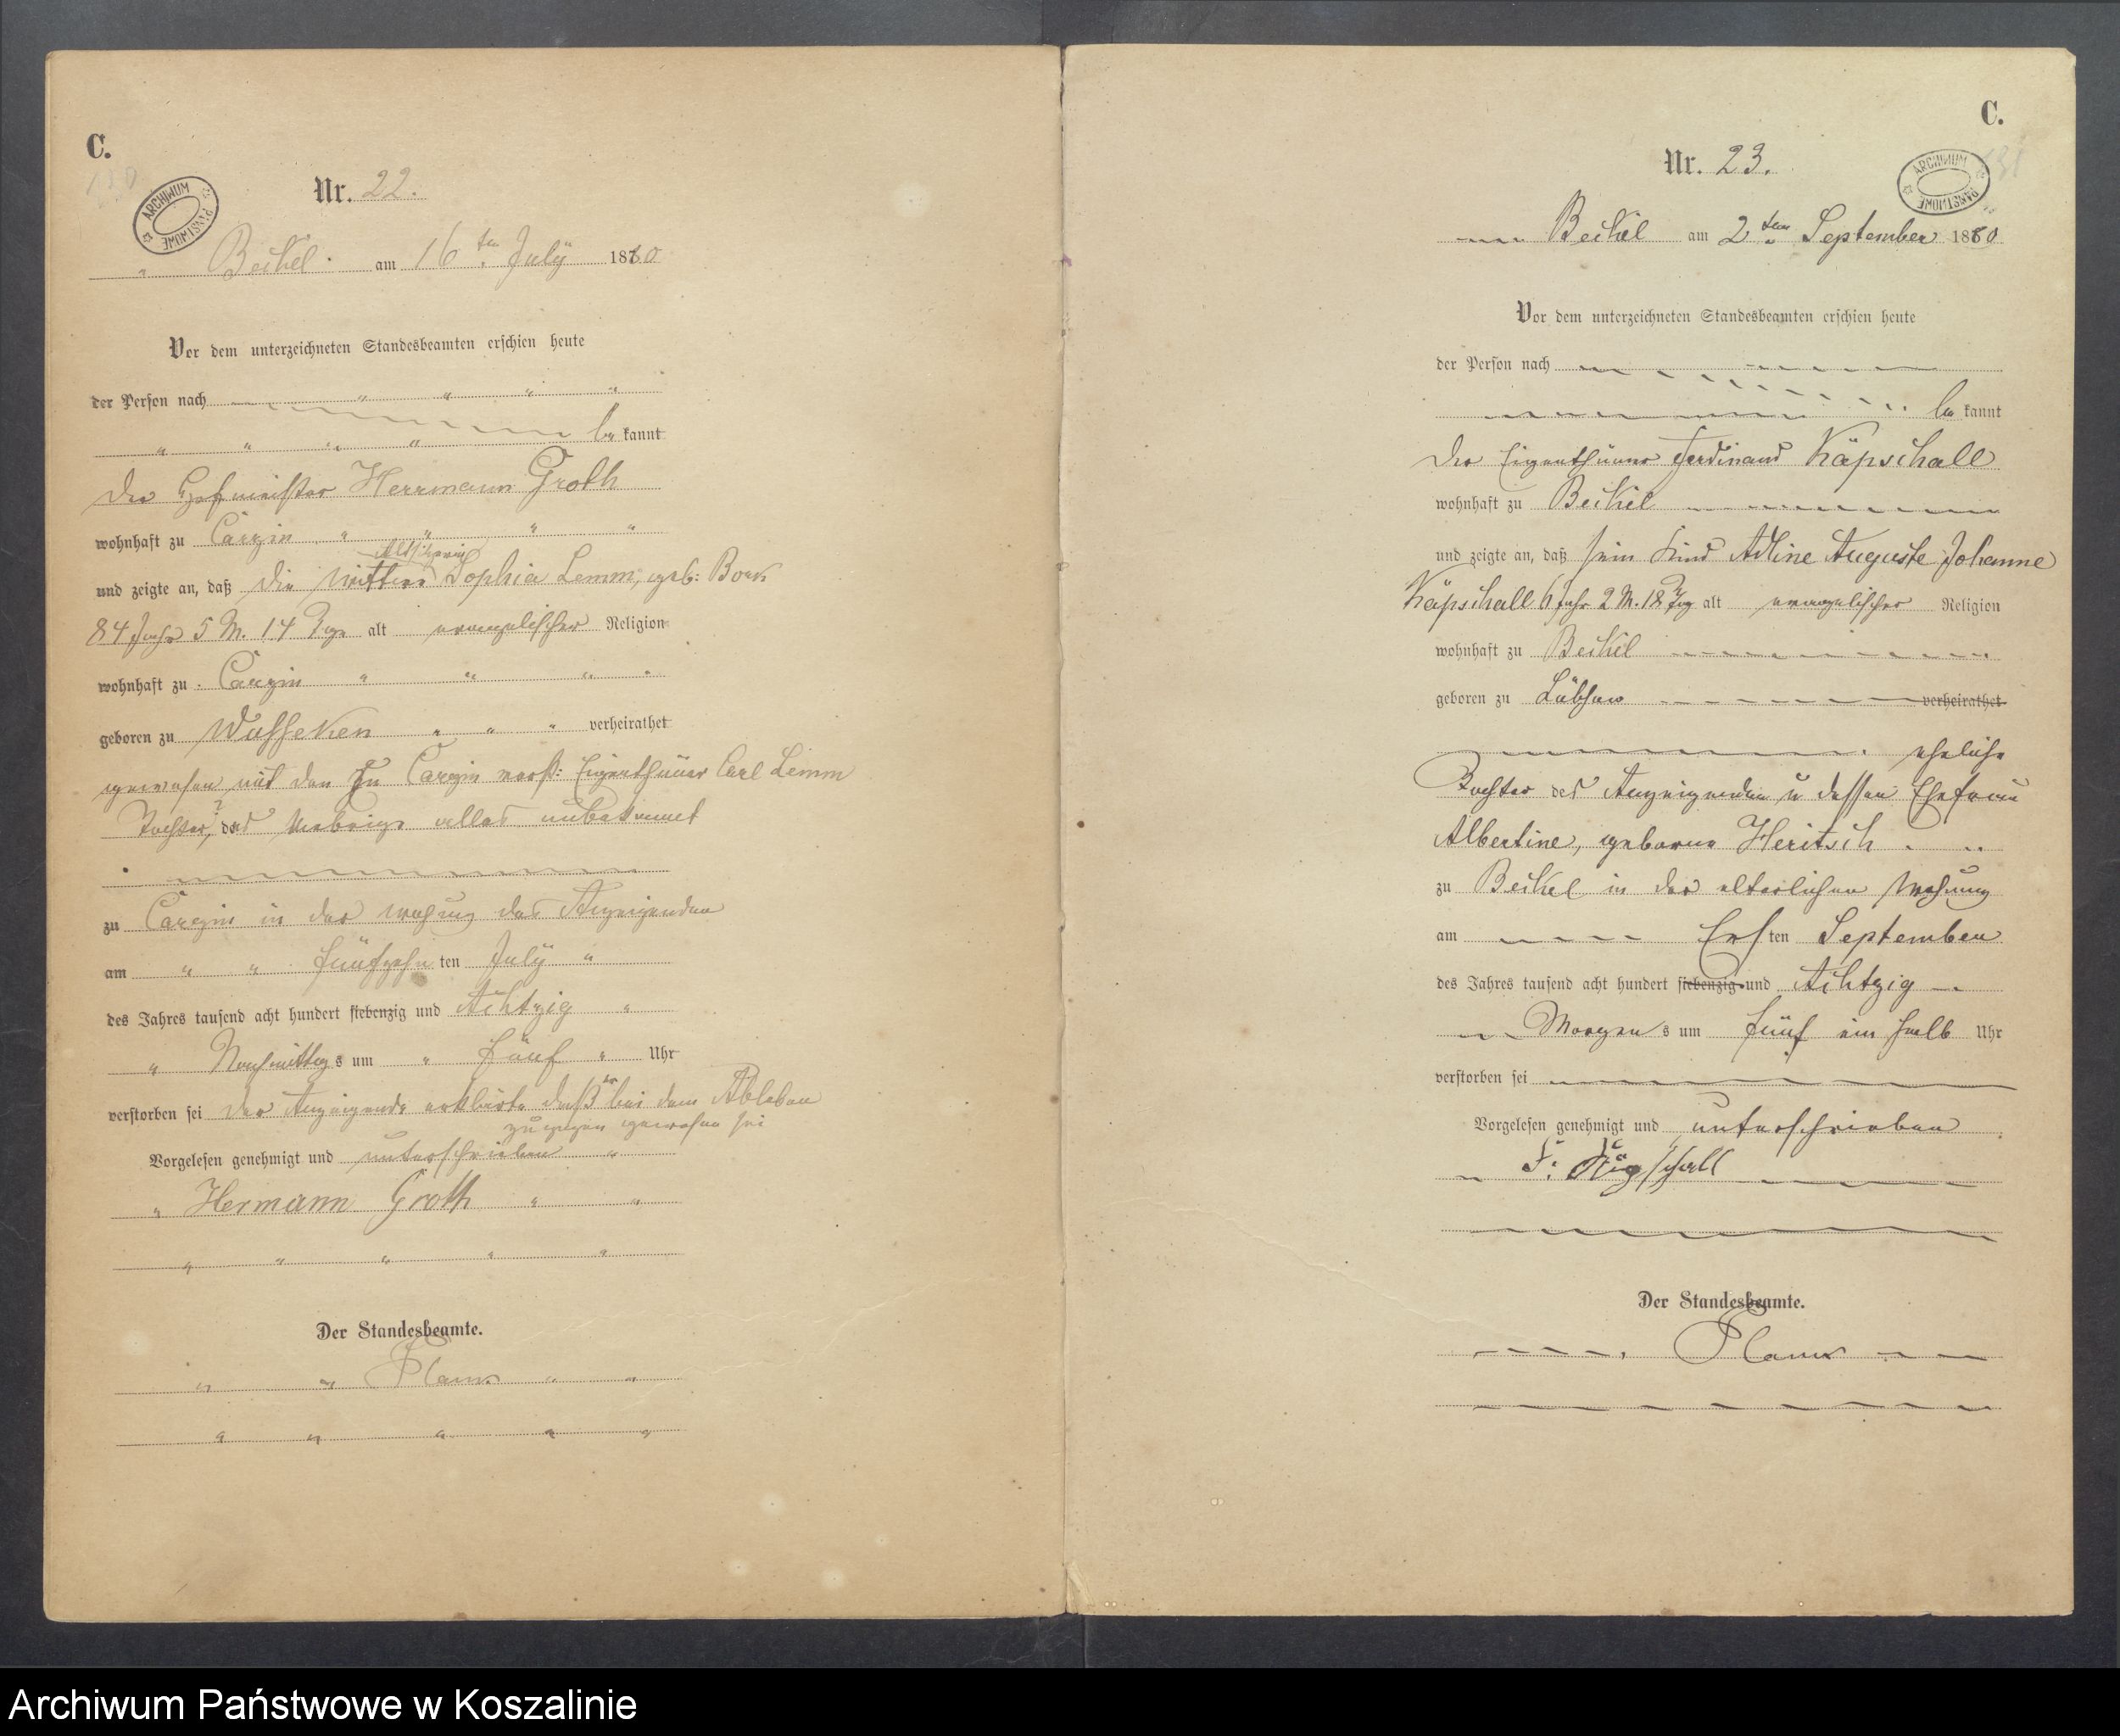 C.
ARCHIWUM PAŃSTWOWE
Nr. 22.
Beckel. am 16ten July 1880
Vor dem unterzeichneten Standesbeamten erschien heute
der Person nach
be kannt
Der Hofmeister Herrmann Groth
wohnhaft zu Carzin
und zeigte an, daß die Wittwe Sophia Lemm, geb: Bork
84 Jahr 5 M. 14 Tge alt evangelischer Religion
wohnhaft zu Carzin
geboren zu Wusseken verheirathet
gewesen mit den zu Carzin verst: Eigenthümer Carl Lemm
Tochter, das Uebrige alles unbekannt
zu Carzin in der Wohung des Anzeigenden
am fünfzehn ten July
des Jahres tausend acht hundert siebenzig und Achtzig
Nachmittag s um Fünf Uhr
verstorben sei Der Anzeigende erklärte daß er bei dem Ableben
zugegen gewesen sei
Vorgelesen genehmigt und unterschrieben
Hermann Groth
Der Standesbeamte.
C.
ARCHIWUM PAŃSTWOWE
131
Nr. 23.
Beckel am 2ten September 1880
Vor dem unterzeichneten Standesbeamten erschien heute
der Person nach
be kannt
Der Eigenthümer Ferdinand Käpschall
wohnhaft zu Beckel
und zeigte an, daß sein Kind Adline Auguste Johanne
Käpschall 6 Jahr 2 M. 18 Tg alt evangelischer Religion
wohnhaft zu Beckel
geboren zu Lübzow verheirathet
eheliche
Tochter des Anzeigenden u dessen Ehefrau
Albertine, geborne Heritsch
zu Beckel in der elterlichen Wohnung
am Ers ten September
des Jahres tausend acht hundert siebenzig und Achtzig
Morgen s um fünf ein halb Uhr
verstorben sei
Vorgelesen genehmigt und unterschrieben
F.
Der Standesbeamte.
Archiwum Państwowe w Koszalinie